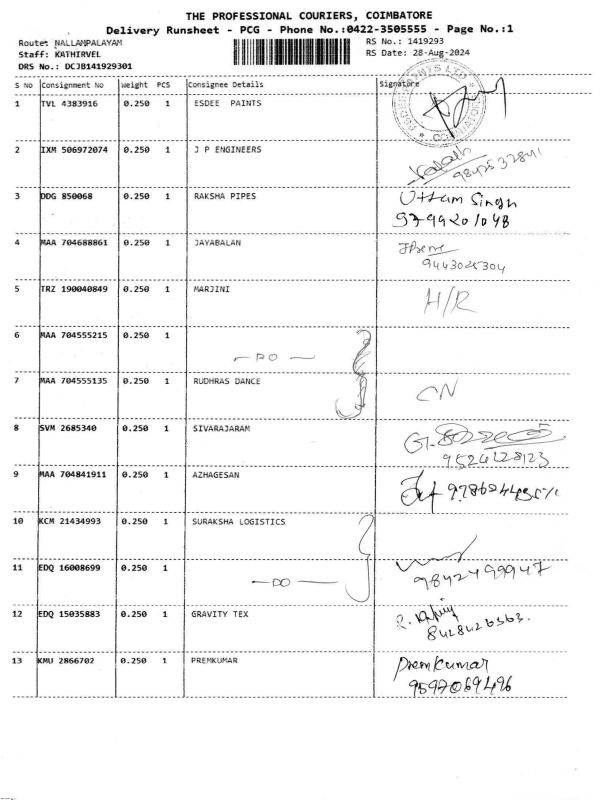 THE PROFESSIONAL COURIERS, COIMBATORE
Delivery Runsheet - PCG - Phone No.:0422-3505555 - Page No.:1
Route: NALLAMPALAYAM
RS No.: 1419293
Staff: KATHIRVEL
RS Date: 28-Aug-2024
DRS No.: DCJB141929301
S No Consignment No Weight PCS Consignee Details Signature
1 TVL 4383916 0.250 1 ESDEE PAINTS
2 IXM 506972074 0.250 1 J P ENGINEERS
9842532841
3 DDG 850068 0.250 1 RAKSHA PIPES Uttam Singh
9799201048
4 MAA 704688861 0.250 1 JAYABALAN
9443025304
5 TRZ 190040849 0.250 1 MARJINI H/R
6 MAA 704555215 0.250 1
— DO —
7 MAA 704555135 0.250 1 RUDHRAS DANCE CN
8 SVM 2685340 0.250 1 SIVARAJARAM
9524228123
9 MAA 704841911 0.250 1 AZHAGESAN
10 KCM 21434993 0.250 1 SURAKSHA LOGISTICS
11 EDQ 16008699 0.250 1
— DO — 9842499947
12 EDQ 15035883 0.250 1 GRAVITY TEX
8428426363.
13 KMU 2866702 0.250 1 PREMKUMAR Premkumar
9597069496